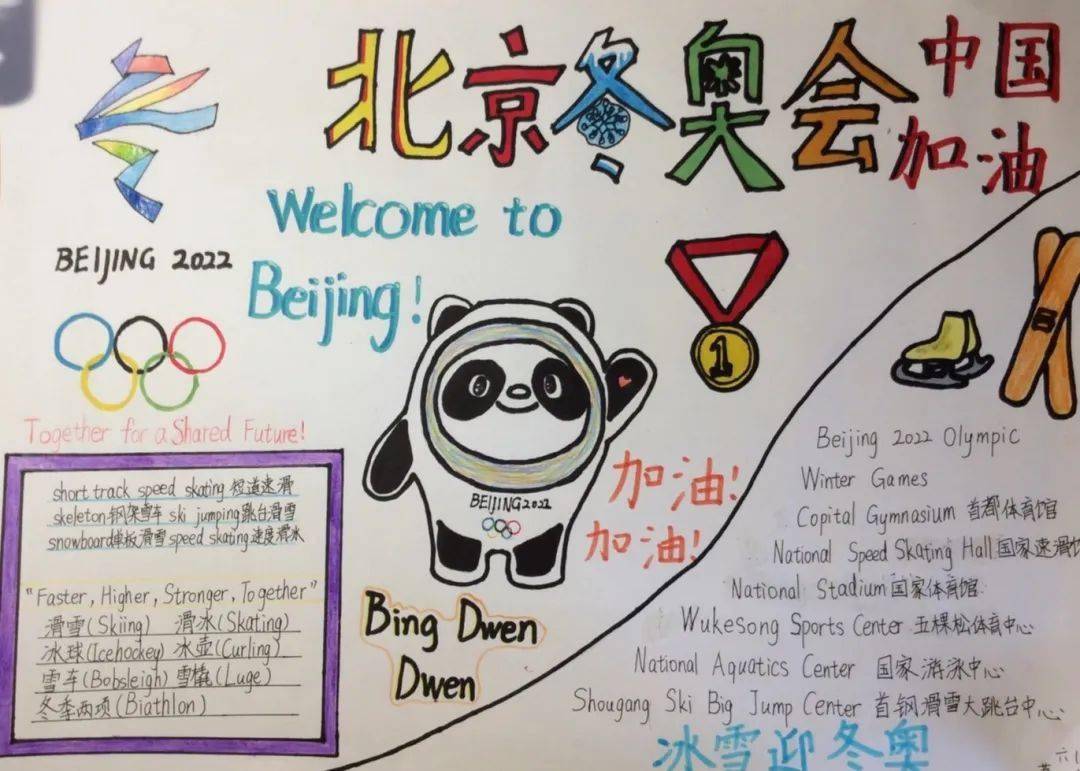 北京冬奥会
中国
加油
Welcome to
Beijing!
BEIJING 2022
Together for a Shared Future!
short track speed skating 短道速滑
skeleton钢架雪车 ski jumping跳台滑雪
snowboard单板滑雪 speed skating速度滑冰
"Faster, Higher, Stronger, Together"
滑雪(Skiing) 滑冰(Skating)
冰球(Icehockey) 冰壶(Curling)
雪车(Bobsleigh) 雪橇(Luge)
冬季两项(Biathlon)
BEIJING2022
加油!
加油!
Bing Dwen
Dwen
1
Beijing 2022 Olympic
Winter Games
Copital Gymnasium 首都体育馆
National Speed Skating Hall 国家速滑馆
National Stadium 国家体育馆
Wukesong Sports Center 五棵松体育中心
National Aquatics Center 国家游泳中心
Shougang Ski Big Jump Center 首钢滑雪大跳台中心
冰雪迎冬奥